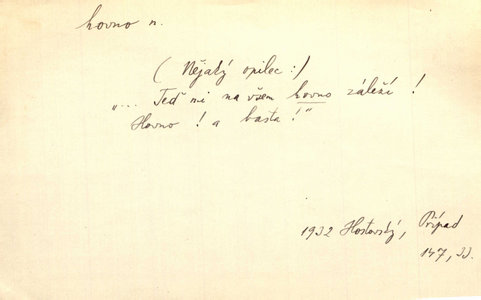 hovno n.
( Nějaký opilec :)
„... Teď mi na všem hovno záleží !
Hovno ! a basta !“
1932 Hostovský, Případ
147, 33.